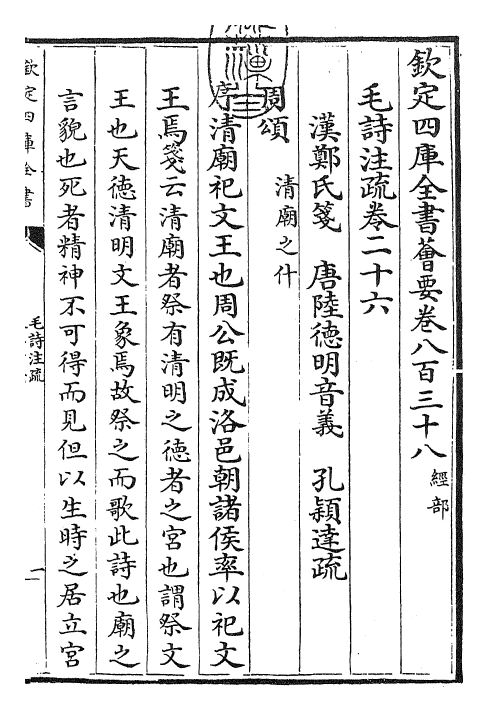 欽定四庫全書薈要卷八百三十八 經部
毛詩注疏卷二十六
漢鄭氏箋 唐陸德明音義 孔穎達疏
周頌 清廟之什
序清廟祀文王也周公既成洛邑朝諸侯率以祀文
王焉箋云清廟者祭有清明之德者之宮也謂祭文
王也天徳清明文王象焉故祭之而歌此詩也廟之
言貌也死者精神不可得而見但以生時之居立宮
欽定四庫全書
毛詩注疏
一